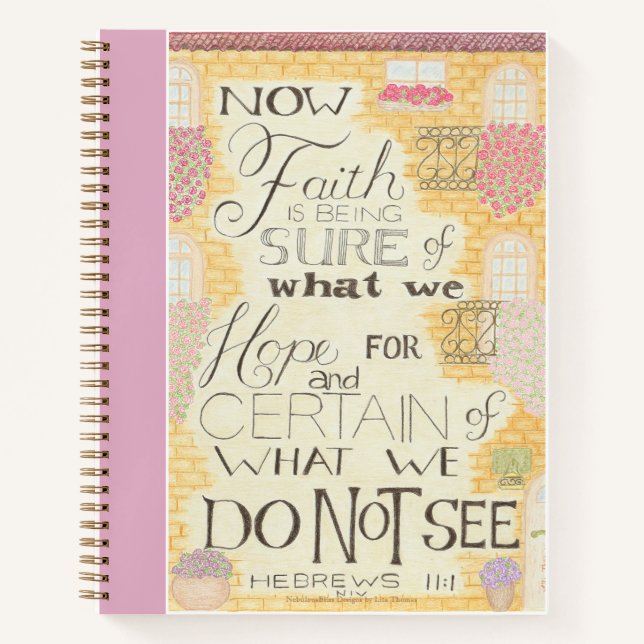 NOW
Faith
IS BEING
SURE of
what we
Hope FOR
and
CERTAIN of
WHAT WE
DO NOT SEE
HEBREWS 11:1
NIV
NebulousBliss Designs by Lita Thomas